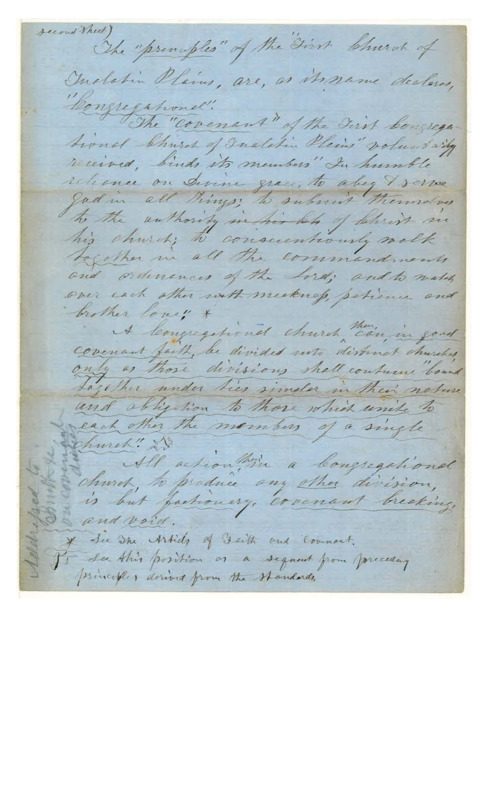 second sheet)
The "principles" of the "First Church of
Tualatin Plains, are, as its name declares,
"Congregational".
The "covenant" of the First Congrega-
tional Church of Tualatin Plains" voluntarily
received, binds its members "In humble
reliance on Divine grace, to obey & serve
god in all things; to submit themselves
to the authority in his ch of Christ in
his church; to conscientiously walk
together in all the commandments
and ordinances of the Lord; and to watch
over each other with meekness, patience and
brother love"; *
A Congregational church then can, in good
covenant faith, be divided into "distinct churches,
only as those divisions shall continue "bound
together under ties similar in their nature
and obligation to those which unite to
each other the members of a single
church".
All action then in a Congregational
church, to produce any other division,
is but factionary, covenant breaking,
and void.
* See the Articles of Faith and Covenant.
See this position as a sequent from preceding
principles derived from the standards
Addressed to
on covenant
duties